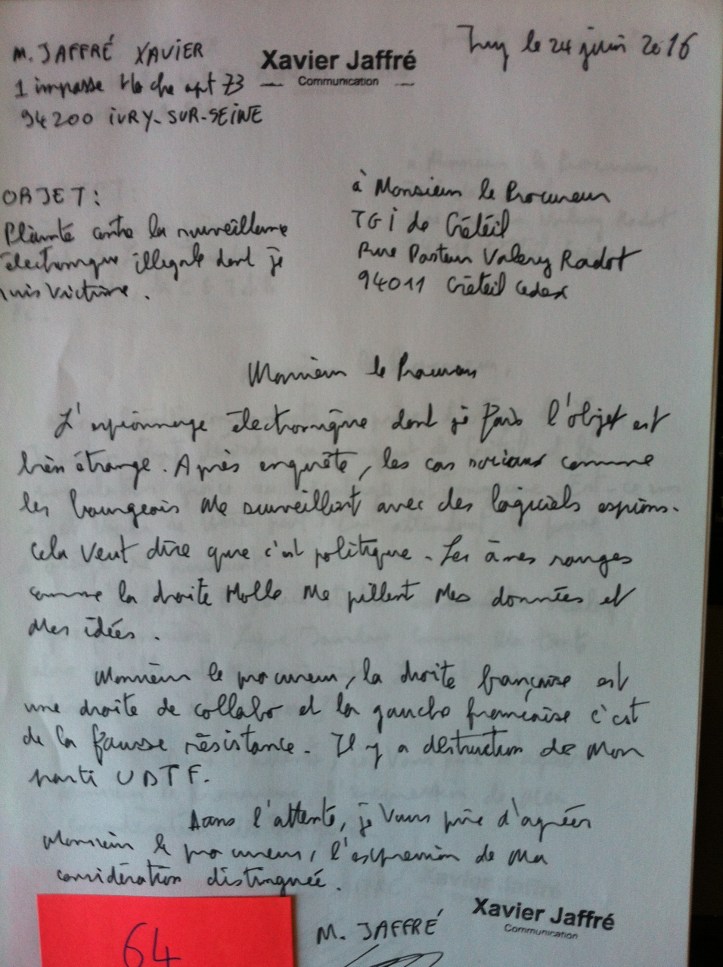 M. JAFFRÉ XAVIER
1 impasse Hoche apt 73
94200 IVRY-SUR-SEINE
Xavier Jaffré
Communication
Ivry le 24 juin 2016
OBJET:
Plainte contre la surveillance
électronique illégale dont je
suis victime.
à Monsieur le Procureur
TGI de Créteil
Rue Pasteur Valery Radot
94011 Créteil Cedex
Monsieur le Procureur
L'espionnage électronique dont je fais l'objet est
bien étrange. Après enquête, les cas sociaux comme
les bourgeois me surveillent avec des logiciels espions.
Cela veut dire que c'est politique. Les âmes rouges
comme la droite Molle me pillent mes données et
mes idées.
Monsieur le procureur, la droite française est
une droite de collabo et la gauche française c'est
de la fausse résistance. Il y a destruction de mon
parti UDTF.
Dans l'attente, je vous prie d'agréer
Monsieur le procureur, l'expression de ma
considération distinguée.
M. JAFFRÉ
Xavier Jaffré
Communication
64